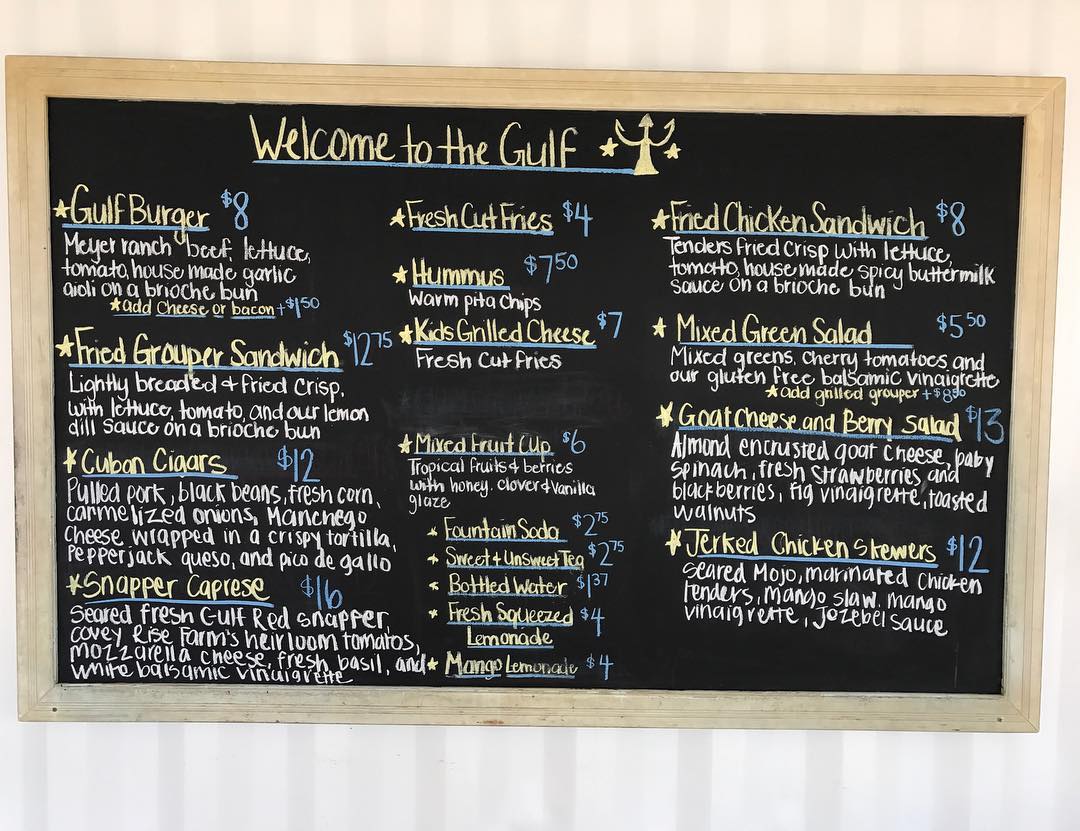 Welcome to the Gulf
Gulf Burger $8
Meyer ranch beef, lettuce,
tomato, house made garlic
aioli on a brioche bun
add cheese or bacon +$1.50
Fried Grouper Sandwich $12.75
Lightly breaded & fried crisp,
with lettuce, tomato, and our lemon
dill sauce on a brioche bun
Cuban Cigars $12
Pulled pork, black beans, fresh corn,
carmelized onions, Manchego
cheese wrapped in a crispy tortilla,
Pepperjack queso, and pico de gallo
Snapper Caprese $16
Seared fresh Gulf Red snapper,
covey Rise Farm's heirloom tomatos,
mozzarella cheese, fresh basil, and
white balsamic vinaigrette
Fresh Cut Fries $4
Hummus $7.50
Warm pita chips
Kids Grilled Cheese $7
Fresh Cut Fries
Mixed Fruit Cup $6
Tropical fruits & berries
with honey, clover & vanilla
glaze
Fountain Soda $2.75
Sweet & Unsweet Tea $2.75
Bottled Water $1.37
Fresh Squeezed $4
Lemonade
Mango Lemonade $4
Fried Chicken Sandwich $8
Tenders fried crisp with lettuce,
tomato, house made spicy buttermilk
sauce on a brioche bun
Mixed Green Salad $5.50
Mixed greens, cherry tomatoes and
our gluten free balsamic vinaigrette
add grilled grouper +$8.50
Goat Cheese and Berry Salad $13
Almond encrusted goat cheese, baby
spinach, fresh strawberries and
blackberries, fig vinaigrette, toasted
walnuts
Jerked Chicken Skewers $12
Seared Mojo, marinated chicken
tenders, mango slaw, mango
vinaigrette, Jezebel sauce